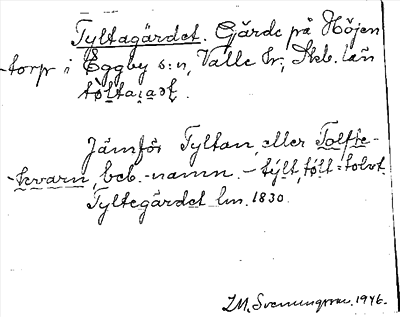 Tyltagärdet. Gärde på Höjen
-torp i Eggby s:n, Valle hr, Skb. län
Jämför Tyltan, eller Tolfte-
-kvarn, beb.-namn. - tỳlt, tølt = tolvt
Tyltegärdet lm. 1830.
I.M. Svenungsson. 1946.